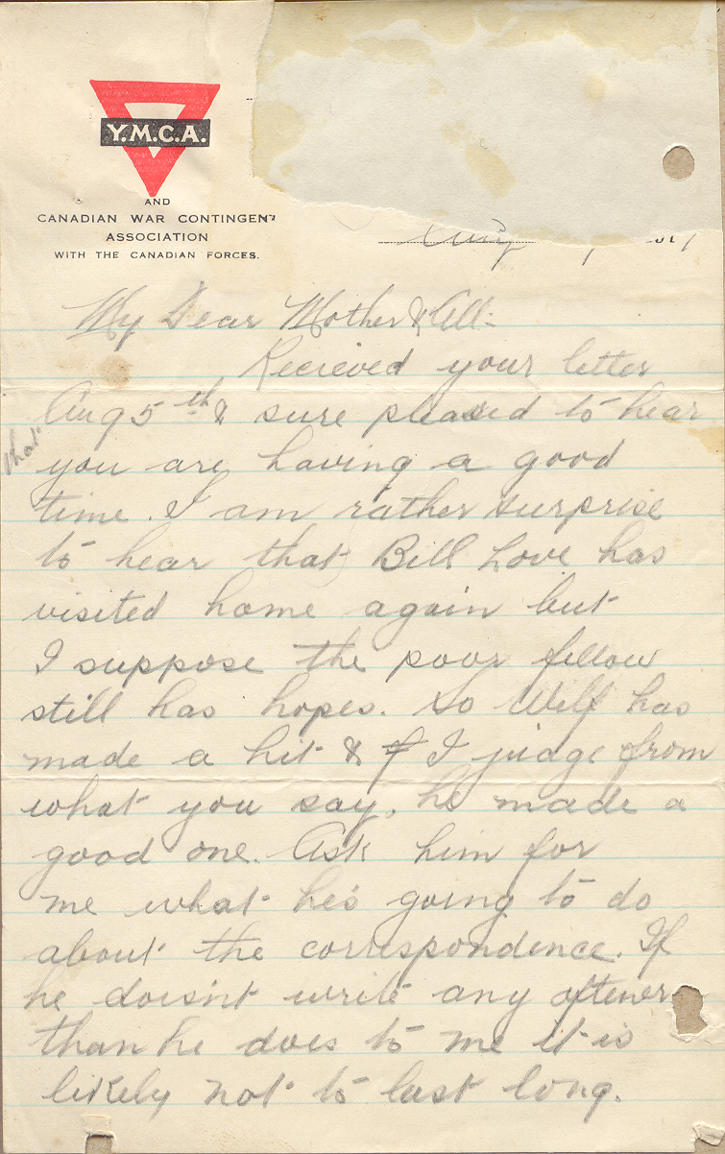 Y.M.C.A.
AND
CANADIAN WAR CONTINGENT
ASSOCIATION
WITH THE CANADIAN FORCES.
Aug
My Dear Mother & All:-
Recieved your letter
Aug 5th & sure pleased to hear
that
you are having a good
time. I am rather surprise
to hear that Bill Love has
visited home again but
I suppose the poor fellow
still has hopes. So Wilf has
made a hit & I judge from
what you say, he made a
good one. Ask him for
me what he's going to do
about the correspondence. If
he doesn't write any oftener
than he does to me it is
likely not to last long.